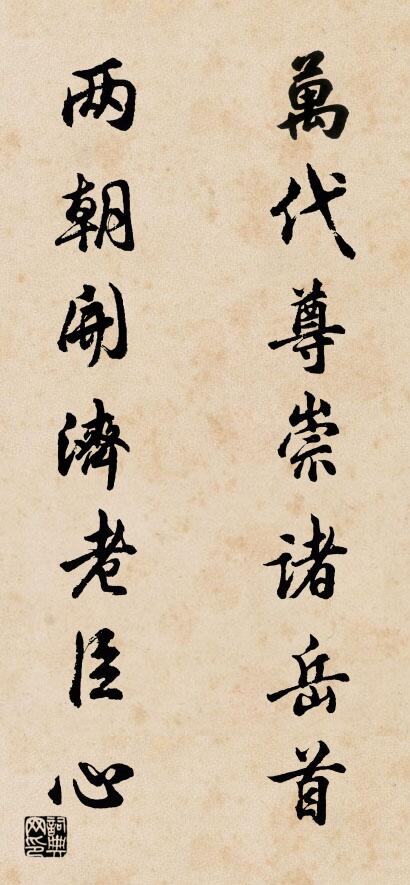 萬代尊崇諸岳首
两朝開濟老臣心
詞典网印